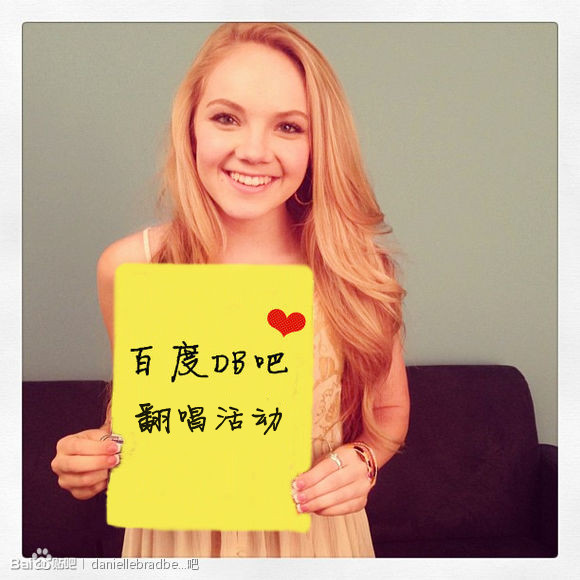 百度DB吧
翻唱活动
Bai贴吧 | daniellebradbe...吧